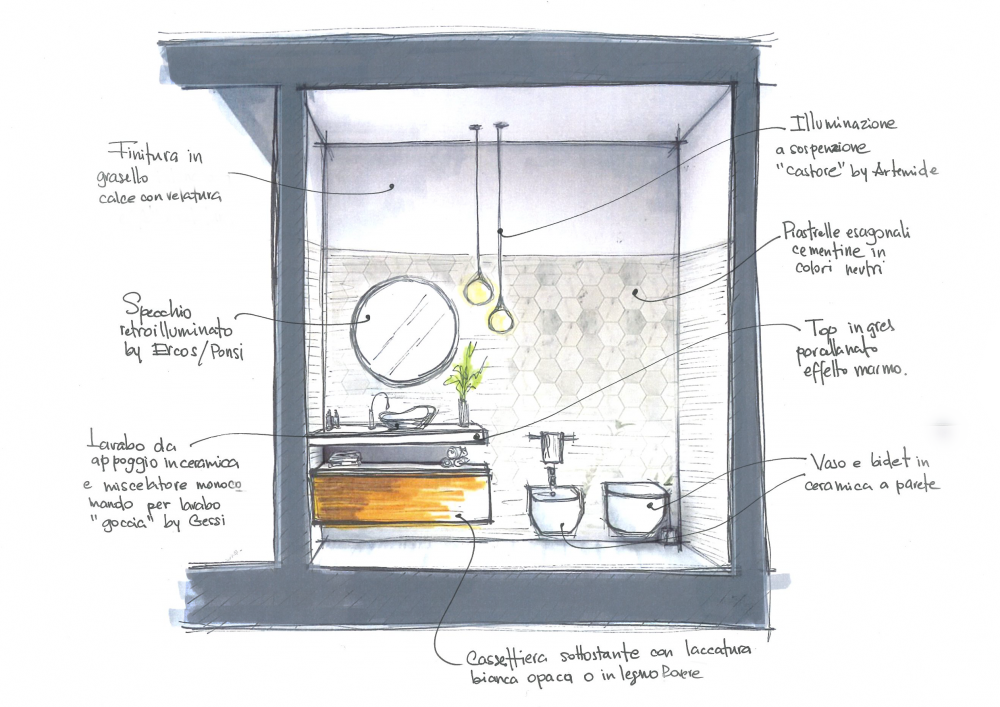 Finitura in
grasello
calce con velatura
Specchio
retroilluminato
by Ercos/Ponsi
Lavabo da
appoggio in ceramica
e miscelatore monoco
mando per lavabo
"goccia" by Gessi
Illuminazione
a sospenzione
"castore" by Artemide
Piastrelle esagonali
cementine in
colori neutri
Top in gres
porcellanato
effetto marmo.
Vaso e bidet in
ceramica a parete
Cassettiera sottostante con laccatura
bianca opaca o in legno Rovere